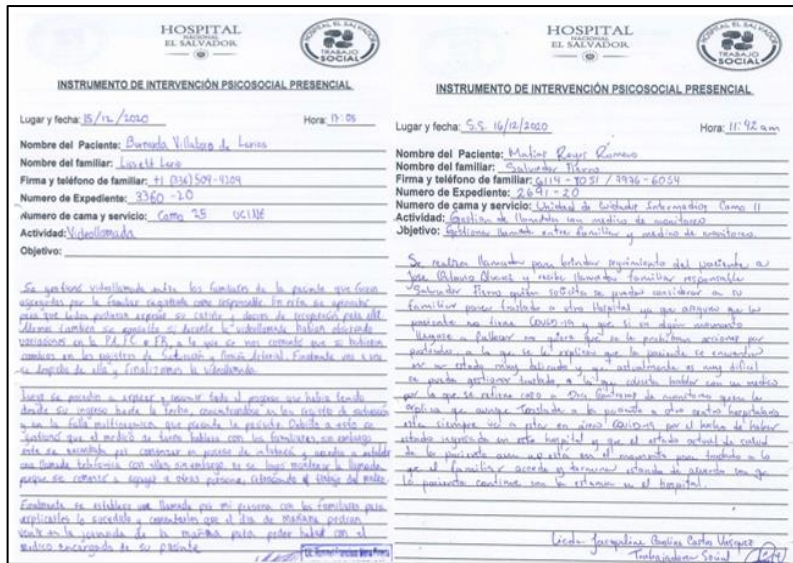 HOSPITAL
NACIONAL
EL SALVADOR
HOSPITAL EL SALVADOR
TRABAJO
SOCIAL
INSTRUMENTO DE INTERVENCIÓN PSICOSOCIAL PRESENCIAL
Lugar y fecha: 15/12/2020 Hora: 17:05
Nombre del Paciente: Villatoro de
Nombre del familiar: Lissett
Firma y teléfono de familiar: +1 (336) 509-4209
Numero de Expediente: 3360-20
Numero de cama y servicio: Cama 25 UCINE
Actividad: Videollamada
Objetivo:
Se gestionó videollamada entre los familiares de la paciente que fueron
agregados por la familiar registrada como responsable. En esta se aprovechó
para que todos pudieran expresar su cariño y deseos de recuperación para ella.
durante la videollamada habían observado
variaciones en la PA, FC o FR, a lo que se nos comentó que si hubieron
cambios en los registros de Saturación y Presión Arterial. Finalmente
se despide de ella y finalizamos la videollamada.
Luego se procedió a expresar y resumir todo el proceso que había tenido
desde su ingreso hasta la fecha, en los registros de saturación
y en la falla multisistémica que presenta la paciente. Debido a esto se
gestionó que el médico de turno hablara con los familiares, sin embargo
este se encontraba por comenzar un proceso de y accedió a entablar
una llamada telefónica con ellos sin embargo no se logró mantener la llamada
porque se comenzó a agregar a otras personas, el trabajo del médico.
Finalmente se establece una llamada por mi persona con los familiares para
explicarles lo sucedido y comentarles que el día de mañana podrían
venir en la jornada de la mañana para poder hablar con el
médico encargado de su paciente
HOSPITAL
NACIONAL
EL SALVADOR
HOSPITAL EL SALVADOR
TRABAJO
SOCIAL
INSTRUMENTO DE INTERVENCIÓN PSICOSOCIAL PRESENCIAL
Lugar y fecha: S.S. 16/12/2020 Hora: 11:42 am
Nombre del Paciente: Reyes Romero
Nombre del familiar: Salvador
Firma y teléfono de familiar: 6114-8051 / 7976-6054
Numero de Expediente: 2691-20
Numero de cama y servicio: Unidad de Cuidados Intermedios Cama 11
Actividad: Gestion de llamadas con medico de monitoreo
Objetivo: Gestionar llamada entre familiar y medico de monitoreo.
Se realiza llamada para brindar seguimiento del paciente a
Jose y recibe llamada familiar responsable
Salvador quien solicita se pueda considerar a su
familiar poner traslado a otro Hospital ya que aseguran que la
paciente no tiene COVID-19 y que si en algun momento
llegase a fallecer no quiere que se le prohiban acciones por
a lo que se le explica que la paciente se encuentra
en un estado muy delicado y que actualmente es muy dificil
se pueda gestionar traslado, a lo que solicita hablar con un medico
por lo que se refiere caso a Dra. de monitoreo quien le
explica que aunque traslade a la paciente a otro centro hospitalario
esta siempre va a area COVID-19 por el hecho de haber
estado ingresada en este hospital y que el estado actual de salud
de la paciente en el momento para traslado a lo
que el familiar acorde es terminar estando de acuerdo con que
la paciente continue con la estancia en el hospital.
Licda. Jacqueline Castro Vásquez
Trabajadora Social